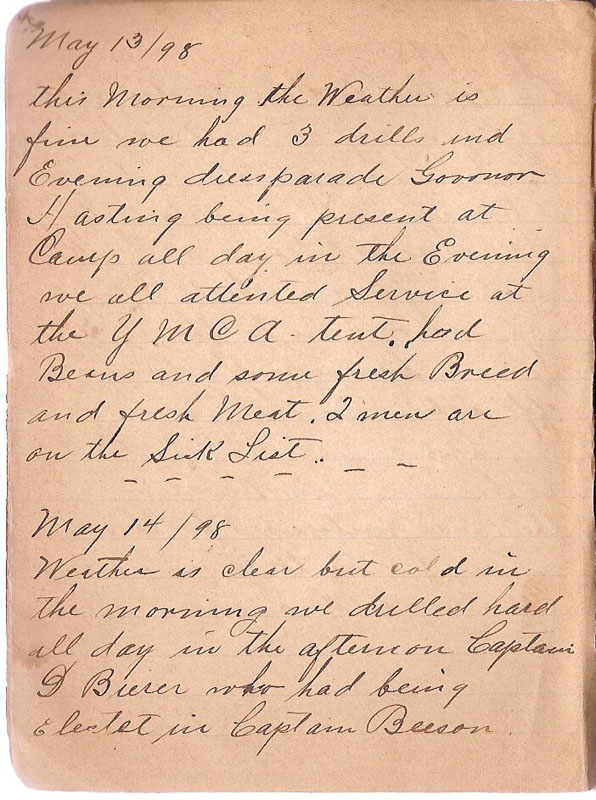 May 13/98
this Morning the Weather is
fine we had 3 drills and
Evening dressparade Govonor
Hasting being present at
Camp all day in the Evening
we all attented Service at
the Y M C A - tent. had
Beans and some fresh Breed
and fresh Meat. 2 men are
on the Sick List.
May 14/98
Weather is clear but cold in
the morning we drilled hard
all day in the afternon Captain
D Bierer who had being
Electet in Captain Beeson